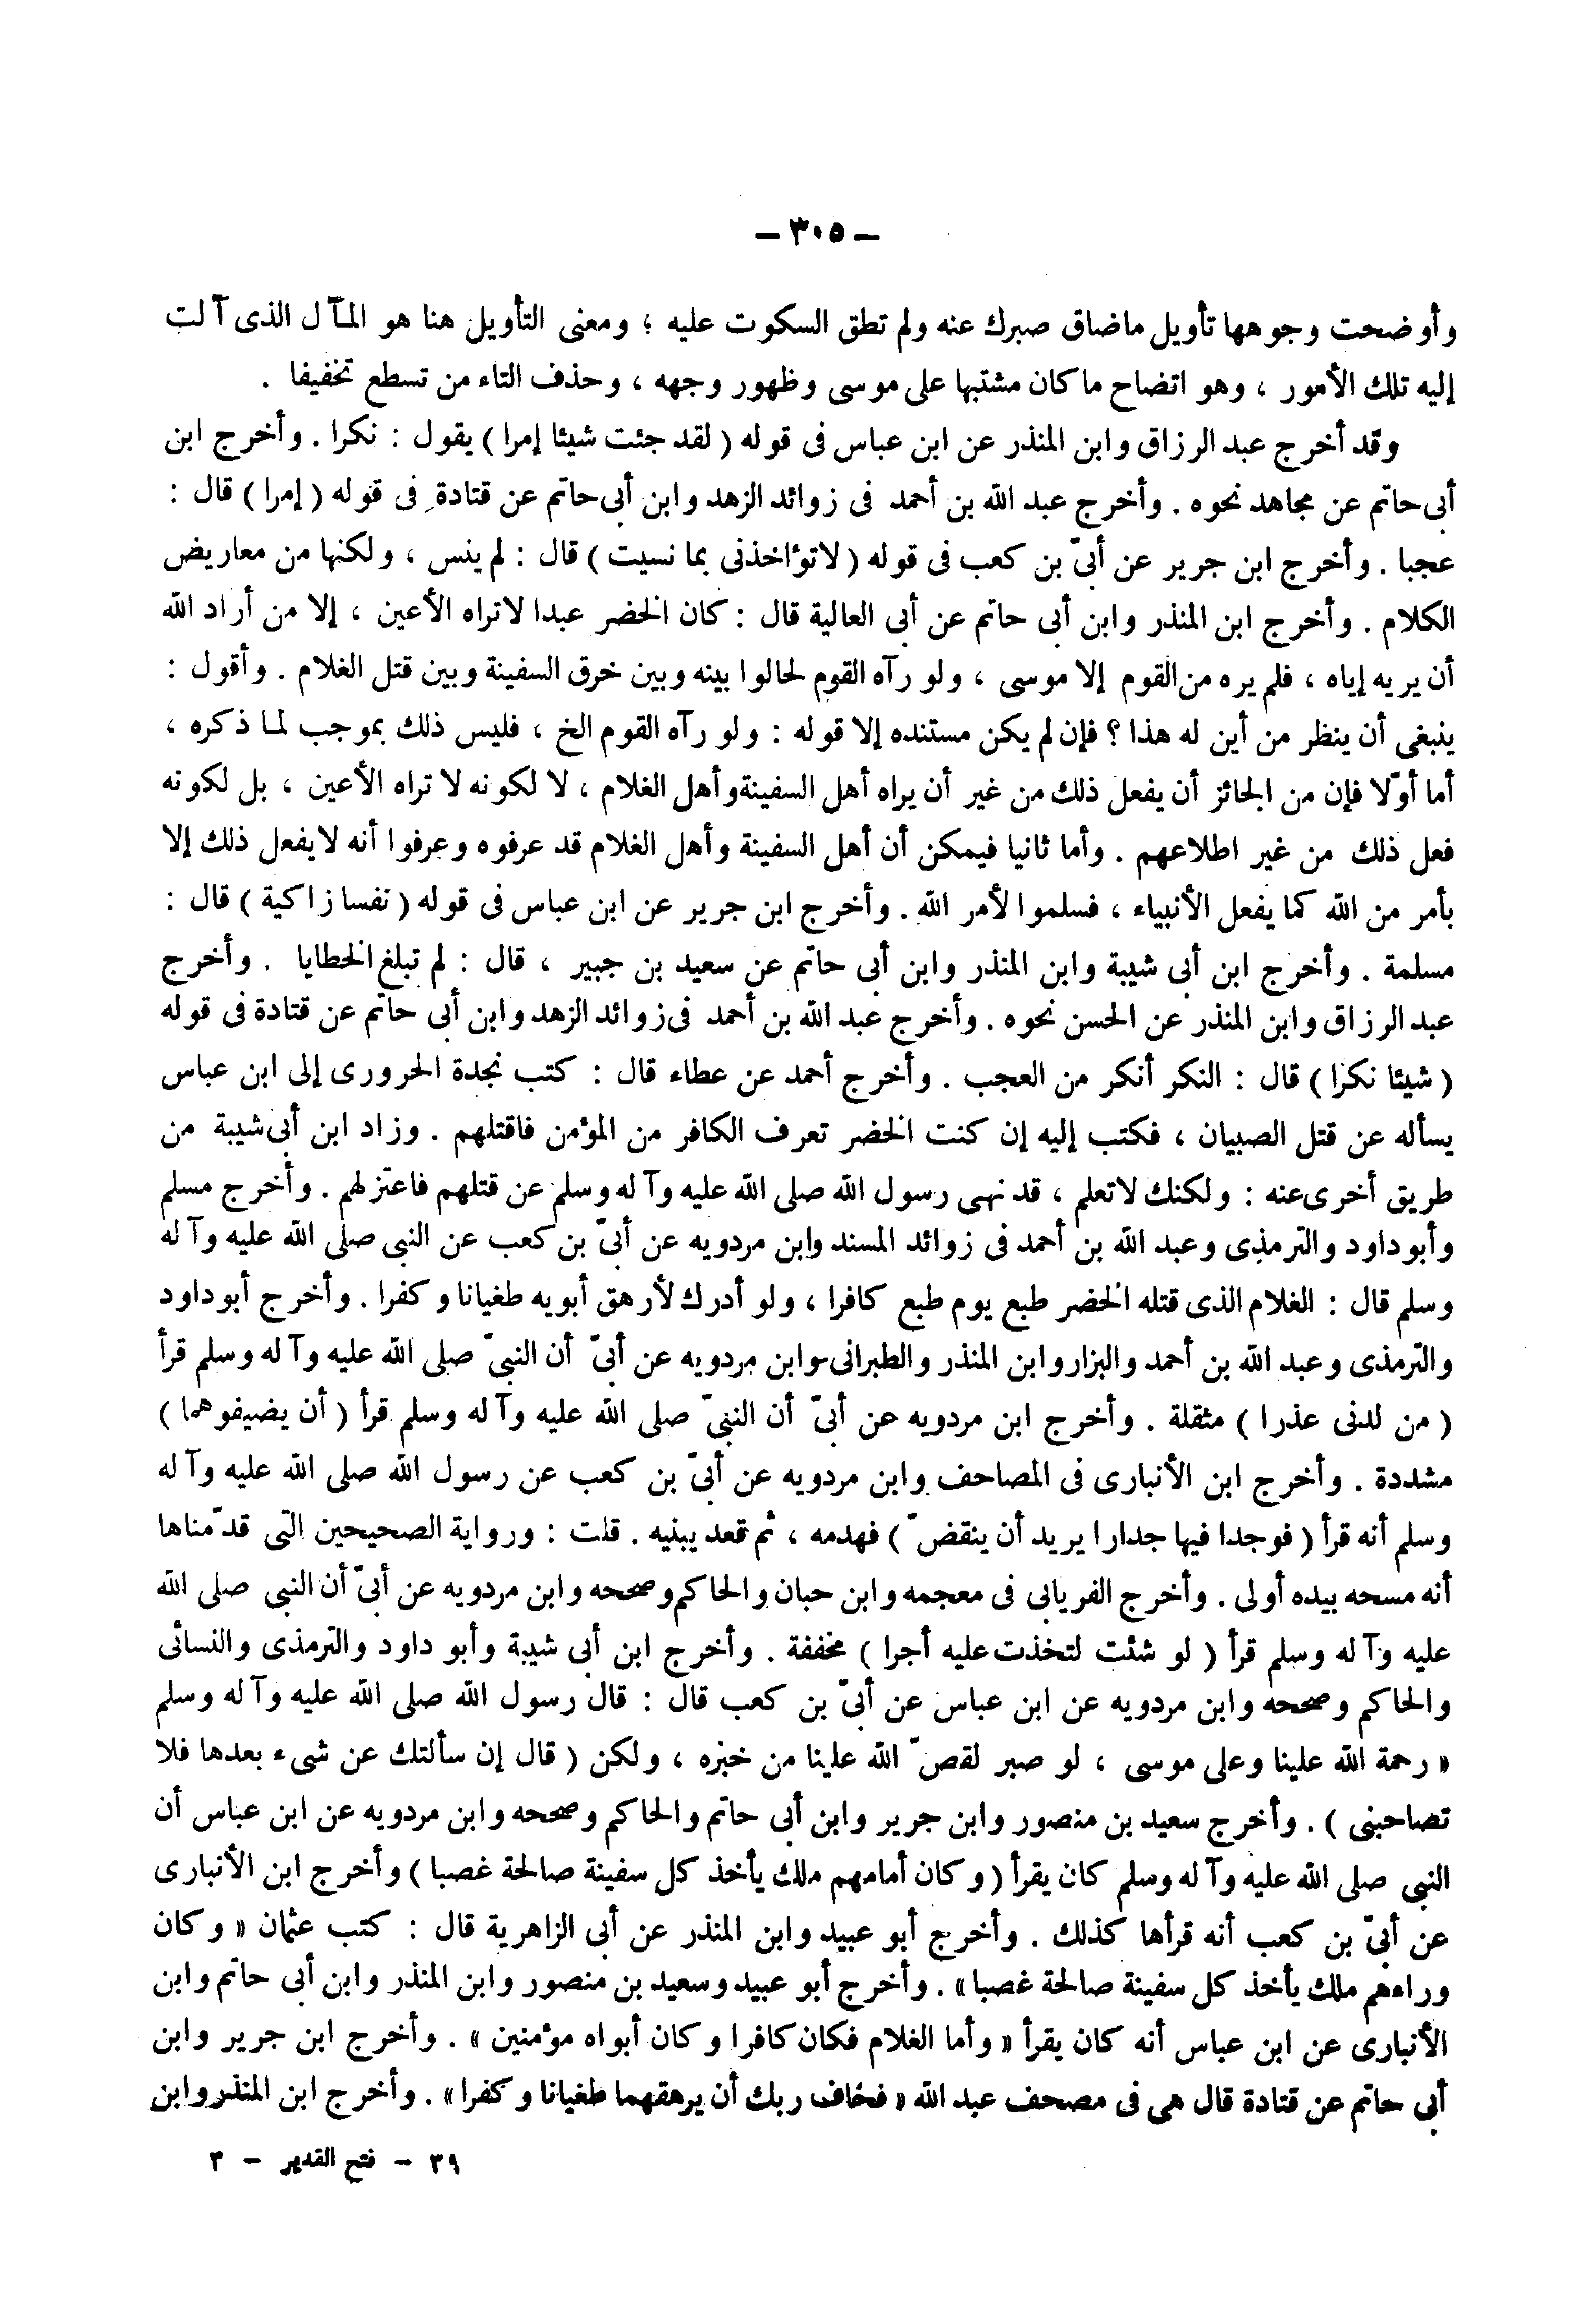 – ٣٠٥ –
وأوضحت وجوهها تأويل ماضاق صبرك عنه ولم تطق السكوت عليه ؛ ومعنى التأويل هنا هو المآل الذى آلت
إليه تلك الأمور ، وهو اتضاح ما كان مشتبها على موسى وظهور وجهه ، وحذف التاء من تسطع تخفيفا .
وقد أخرج عبد الرزاق وابن المنذر عن ابن عباس فى قوله ( لقد جئت شيئا إمرا ) يقول : نكرا . وأخرج ابن
أبى حاتم عن مجاهد نحوه . وأخرج عبد الله بن أحمد فى زوائد الزهد وابن أبى حاتم عن قتادة فى قوله ( إمرا ) قال :
عجبا . وأخرج ابن جرير عن أبىّ بن كعب فى قوله ( لاتؤاخذنى بما نسيت ) قال : لم ينس ، ولكنها من معاريض
الكلام . وأخرج ابن المنذر وابن أبى حاتم عن أبى العالية قال : كان الخضر عبدا لاتراه الأعين ، إلا من أراد الله
أن يريه إياه ، فلم يره من القوم إلا موسى ، ولو رآه القوم لحالوا بينه وبين خرق السفينة وبين قتل الغلام . وأقول :
ينبغى أن ينظر من أين له هذا ؟ فإن لم يكن مستنده إلا قوله : ولو رآه القوم الخ ، فليس ذلك بموجب لما ذكره ،
أما أوّلا فإن من الجائز أن يفعل ذلك من غير أن يراه أهل السفينة وأهل الغلام ، لا لكونه لا تراه الأعين ، بل لكونه
فعل ذلك من غير اطلاعهم . وأما ثانيا فيمكن أن أهل السفينة وأهل الغلام قد عرفوه وعرفوا أنه لايفعل ذلك إلا
بأمر من الله كما يفعل الأنبياء ، فسلموا لأمر الله . وأخرج ابن جرير عن ابن عباس فى قوله ( نفسا زاكية ) قال :
مسلمة . وأخرج ابن أبى شيبة وابن المنذر وابن أبى حاتم عن سعيد بن جبير ، قال : لم تبلغ الخطايا . وأخرج
عبد الرزاق وابن المنذر عن الحسن نحوه . وأخرج عبد الله بن أحمد فى زوائد الزهد وابن أبى حاتم عن قتادة فى قوله
( شيئا نكرا ) قال : النكر أنكر من العجب . وأخرج أحمد عن عطاء قال : كتب نجدة الحرورى إلى ابن عباس
يسأله عن قتل الصبيان ، فكتب إليه إن كنت الخضر تعرف الكافر من المؤمن فاقتلهم . وزاد ابن أبى شيبة من
طريق أخرى عنه : ولكنك لاتعلم ، قد نهى رسول الله صلى الله عليه وآله وسلم عن قتلهم فاعتزلهم . وأخرج مسلم
وأبو داود والترمذى وعبد الله بن أحمد فى زوائد المسند وابن مردويه عن أبىّ بن كعب عن النبى صلى الله عليه وآله
وسلم قال : الغلام الذى قتله الخضر طبع يوم طبع كافرا ، ولو أدرك لأرهق أبويه طغيانا وكفرا . وأخرج أبو داود
والترمذى وعبد الله بن أحمد والبزار وابن المنذر والطبرانى وابن مردويه عن أبىّ أن النبىّ صلى الله عليه وآله وسلم قرأ
( من لدنى عذرا ) مثقلة . وأخرج ابن مردويه عن أبىّ أن النبىّ صلى الله عليه وآله وسلم قرأ ( أن يضيفوهما )
مشددة . وأخرج ابن الأنبارى فى المصاحف وابن مردويه عن أبىّ بن كعب عن رسول الله صلى الله عليه وآله
وسلم أنه قرأ ( فوجدا فيها جدارا يريد أن ينقضّ ) فهدمه ، ثم قعد يبنيه . قلت : ورواية الصحيحين التى قدّمناها
أنه مسحه بيده أولى . وأخرج الفريابى فى معجمه وابن حبان والحاكم وصححه وابن مردويه عن أبىّ أن النبى صلى الله
عليه وآله وسلم قرأ ( لو شئت لتخذت عليه أجرا ) مخففة . وأخرج ابن أبى شيبة وأبو داود والترمذى والنسائى
والحاكم وصححه وابن مردويه عن ابن عباس عن أبىّ بن كعب قال : قال رسول الله صلى الله عليه وآله وسلم
« رحمة الله علينا وعلى موسى ، لو صبر لقصّ الله علينا من خبره ، ولكن ( قال إن سألتك عن شىء بعدها فلا
تصاحبنى ) . وأخرج سعيد بن منصور وابن جرير وابن أبى حاتم والحاكم وصححه وابن مردويه عن ابن عباس أن
النبى صلى الله عليه وآله وسلم كان يقرأ ( وكان أمامهم ملك يأخذ كل سفينة صالحة غصبا ) وأخرج ابن الأنبارى
عن أبىّ بن كعب أنه قرأها كذلك . وأخرج أبو عبيد وابن المنذر عن أبى الزاهرية قال : كتب عثمان « وكان
وراءهم ملك يأخذ كل سفينة صالحة غصبا » . وأخرج أبو عبيد وسعيد بن منصور وابن المنذر وابن أبى حاتم وابن
الأنبارى عن ابن عباس أنه كان يقرأ « وأما الغلام فكان كافرا وكان أبواه مؤمنين » . وأخرج ابن جرير وابن
أبى حاتم عن قتادة قال هى فى مصحف عبد الله « فخاف ربك أن يرهقهما طغيانا وكفرا » . وأخرج ابن المنذر وابن
٣٩ – فتح القدير – ٣